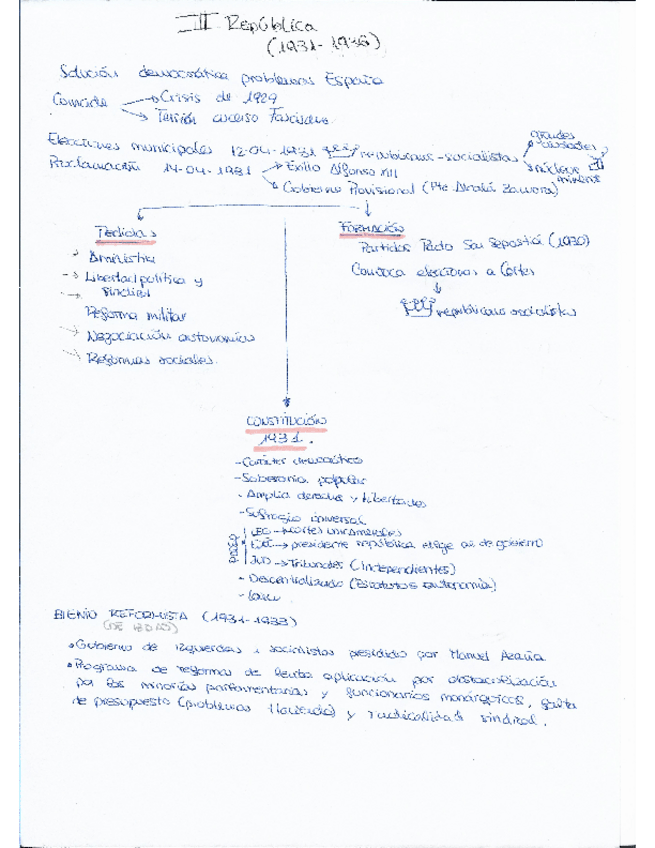 III República
(1931-1936)
Solución democrática problemas España
Coincide → Crisis de 1929
→ Tensión ascenso Fascismo
Elecciones municipales 12-04-1931 republicanos-socialistas grandes ciudades
Proclamación 14-04-1931 → Exilio Alfonso XIII núcleos mineros
→ Gobierno Provisional (Pte. Alcalá Zamora)
Medidas
FORMACIÓN
Partidos Pacto San Sebastián (1930)
→ Amnistía
Convoca elecciones a Cortes
→ Libertad política y
→ sindical
republicanos socialistas
Reforma militar
→ Negociación autonomías
→ Reformas sociales.
CONSTITUCIÓN
1931.
- Carácter democrático
- Soberanía popular
- Amplia derechos y libertades
- Sufragio universal
LEG → Cortes unicamerales
EJEC → presidente república elige al de gobierno
JUD → Tribunales (Independientes)
- Descentralizado (Estatutos autonomía)
- Laico
BIENIO REFORMISTA (1931-1933)
(DE IZDAS)
• Gobierno de izquierdas y socialistas presidido por Manuel Azaña.
• Programa de reformas de lenta aplicación por obstaculización
por las minorías parlamentarias y funcionarios monárquicos, falta
de presupuesto (problemas Hacienda) y radicalidad sindical.